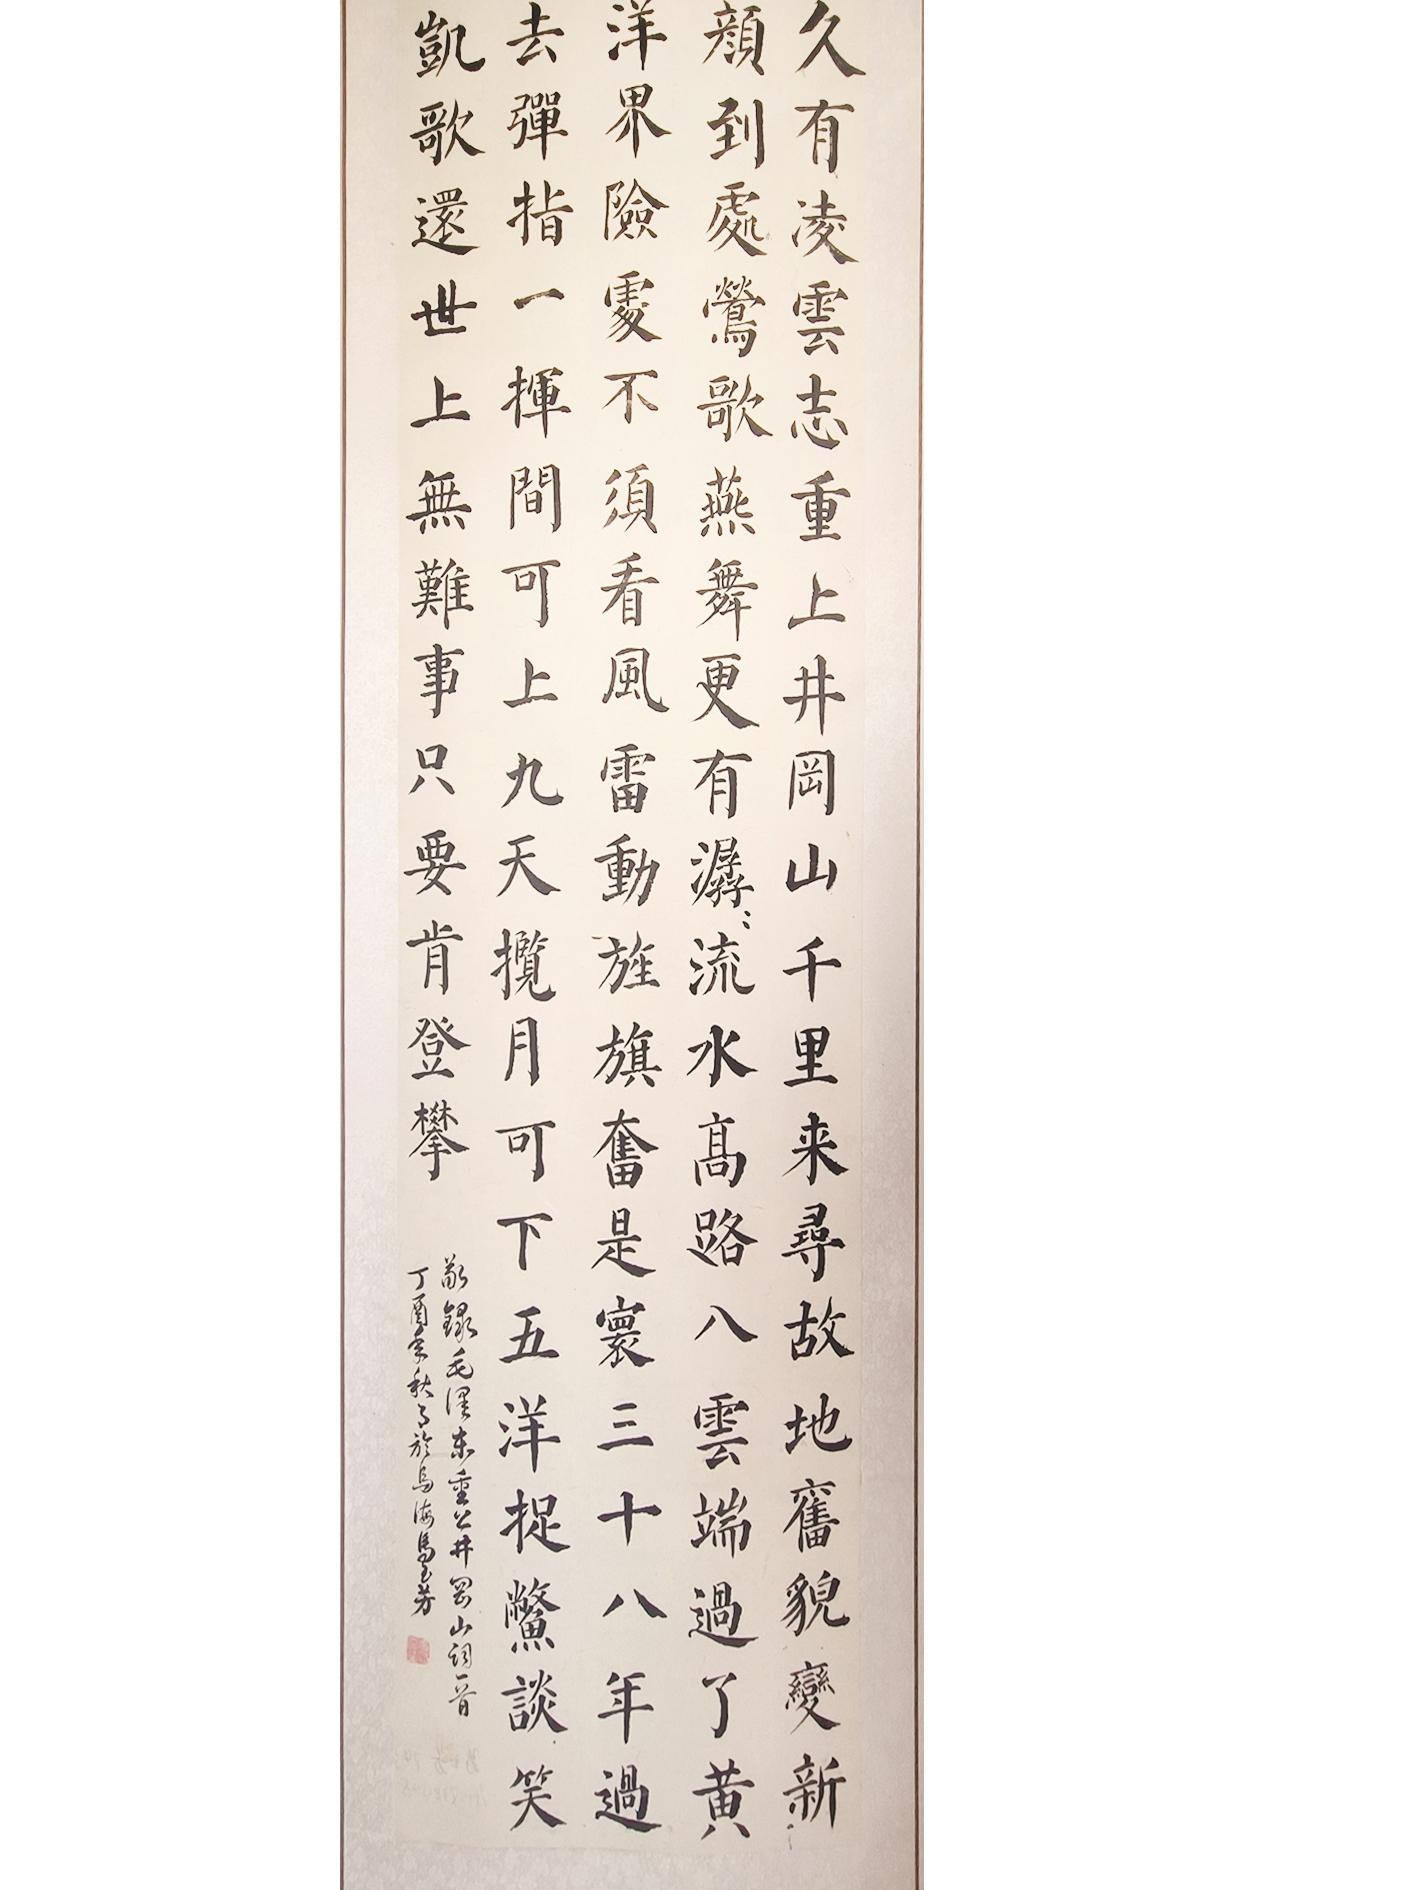 久有凌雲志重上井岡山千里来尋故地舊貌變新
顔到處鶯歌燕舞更有潺〻流水高路八雲端過了黄
洋界險處不須看風雷動旌旗奮是寰三十八年過
去彈指一揮間可上九天攬月可下五洋捉鱉談笑
凱歌還世上無難事只要肯登攀
敬録毛澤東重上井岡山詞一首
丁酉年秋月於烏海馬玉芳